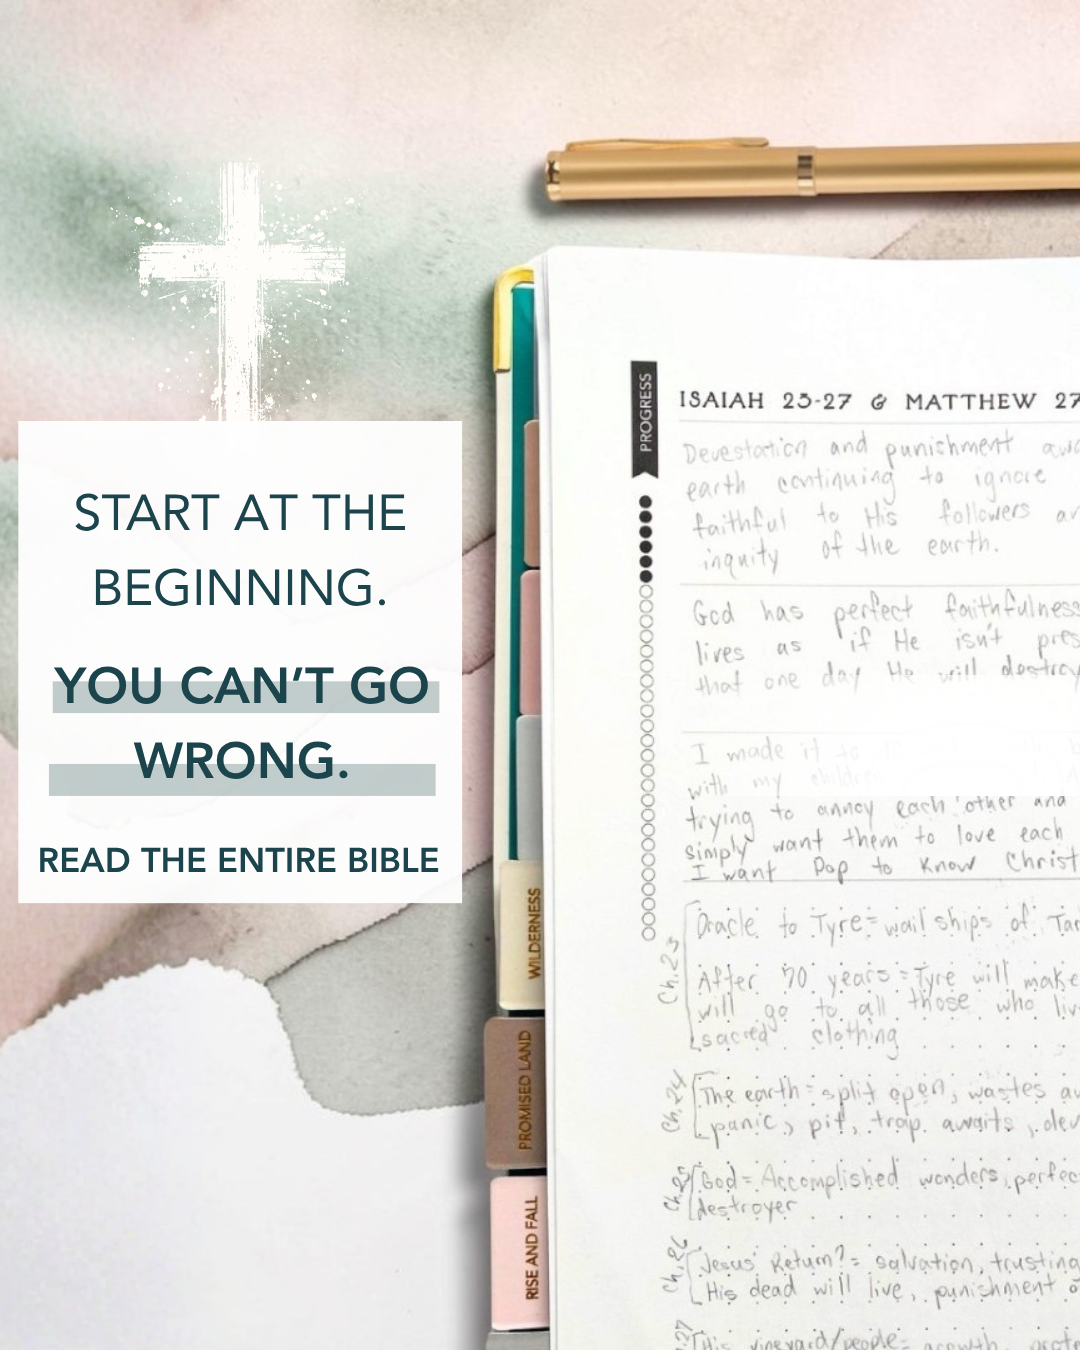 START AT THE
BEGINNING.
YOU CAN'T GO
WRONG.
READ THE ENTIRE BIBLE
PROGRESS
ISAIAH 23-27 & MATTHEW 27
Devestation and punishment
earth continuing to ignore
faithful to His followers
inquity of the earth.
God has perfect faithfulness
lives as if He isn't
that one day He will destroy
I made it to
with my children
trying to annoy each other and
simply want them to love each
I want Pop to know Christ
Ch. 23
Oracle to Tyre = wail ships of
After 70 years = Tyre will make
will go to all those who
sacred clothing
Ch. 24
The earth = split open, wastes
panic, pit, trap awaits,
Ch. 25
God = Accomplished wonders,
destroyer
Ch. 26
Jesus' Return? = salvation, trusting
His dead will live, punishment
His vineyard/people = growth,
WILDERNESS
PROMISED LAND
RISE AND FALL